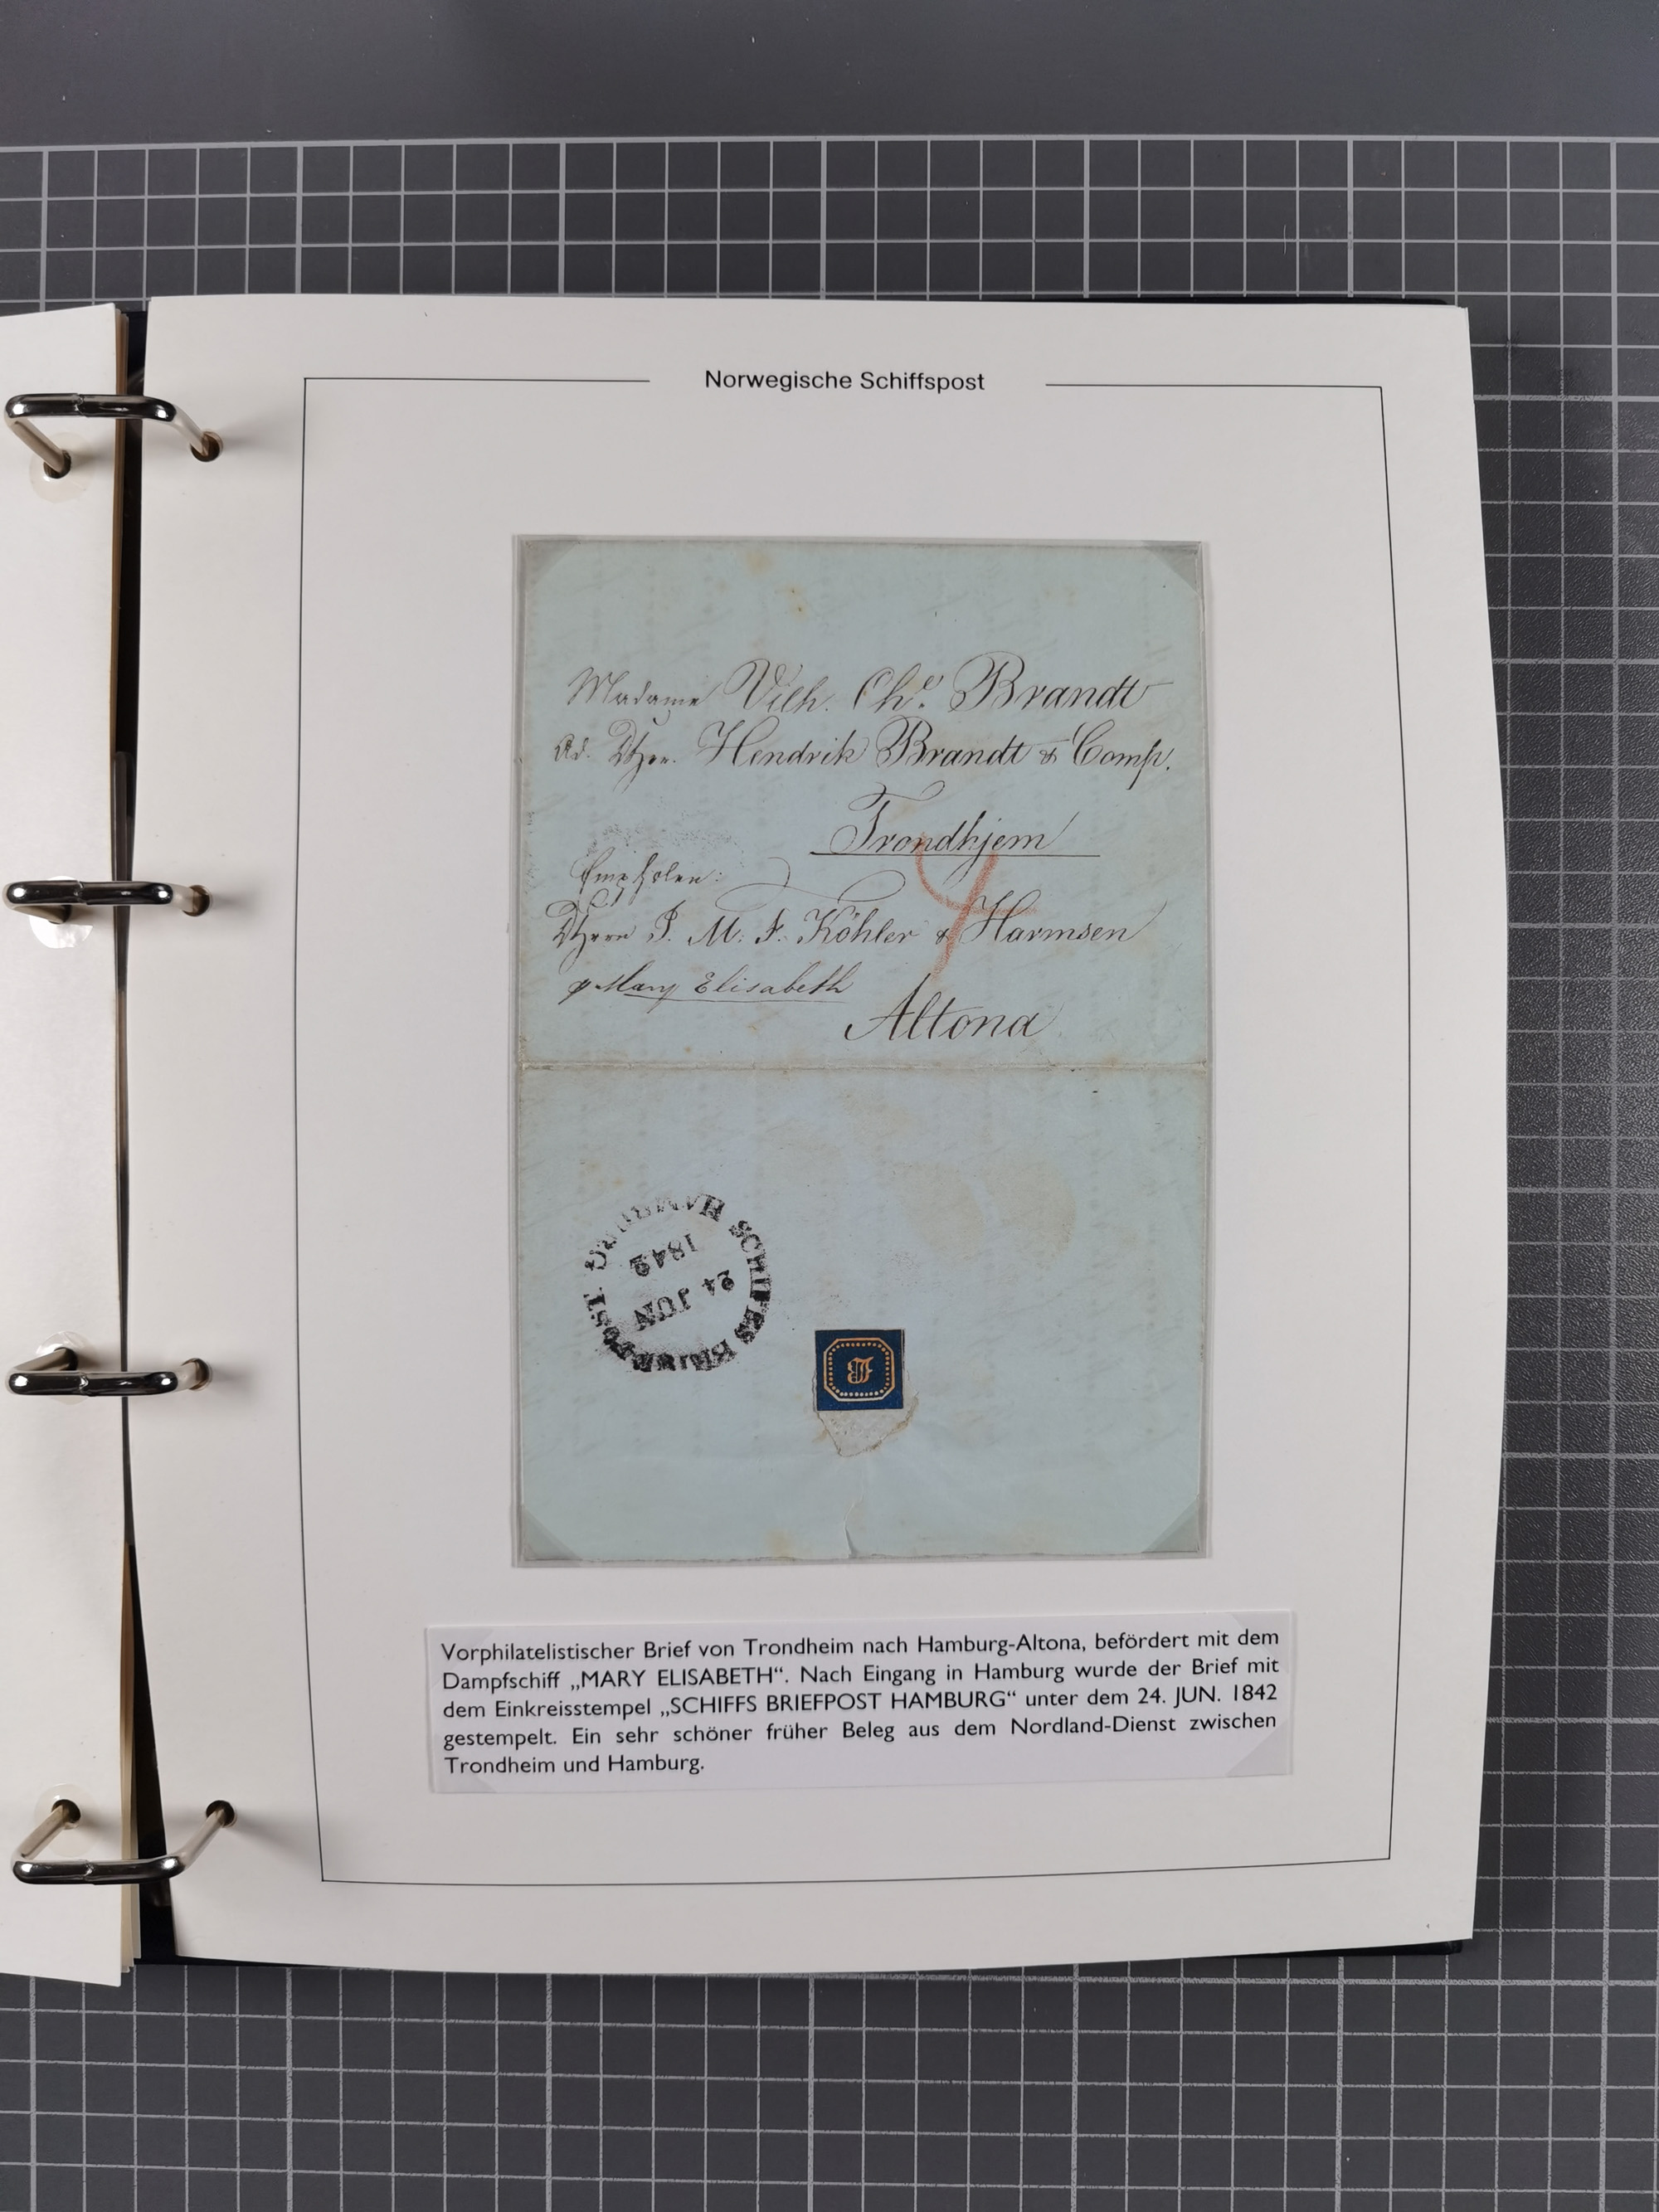 Norwegische Schiffspost
Madame Vilh. Chr. Brandt
Hendrik Brandt & Comp.
Trondhjem
4
Empfolen:
J. M. F. Köhler & Harmsen
Mary Elisabeth
Altona
SCHIFFS BRIEFPOST HAMBURG
24 JUN
1842
Vorphilatelistischer Brief von Trondheim nach Hamburg-Altona, befördert mit dem
Dampfschiff „MARY ELISABETH“. Nach Eingang in Hamburg wurde der Brief mit
dem Einkreisstempel „SCHIFFS BRIEFPOST HAMBURG“ unter dem 24. JUN. 1842
gestempelt. Ein sehr schöner früher Beleg aus dem Nordland-Dienst zwischen
Trondheim und Hamburg.